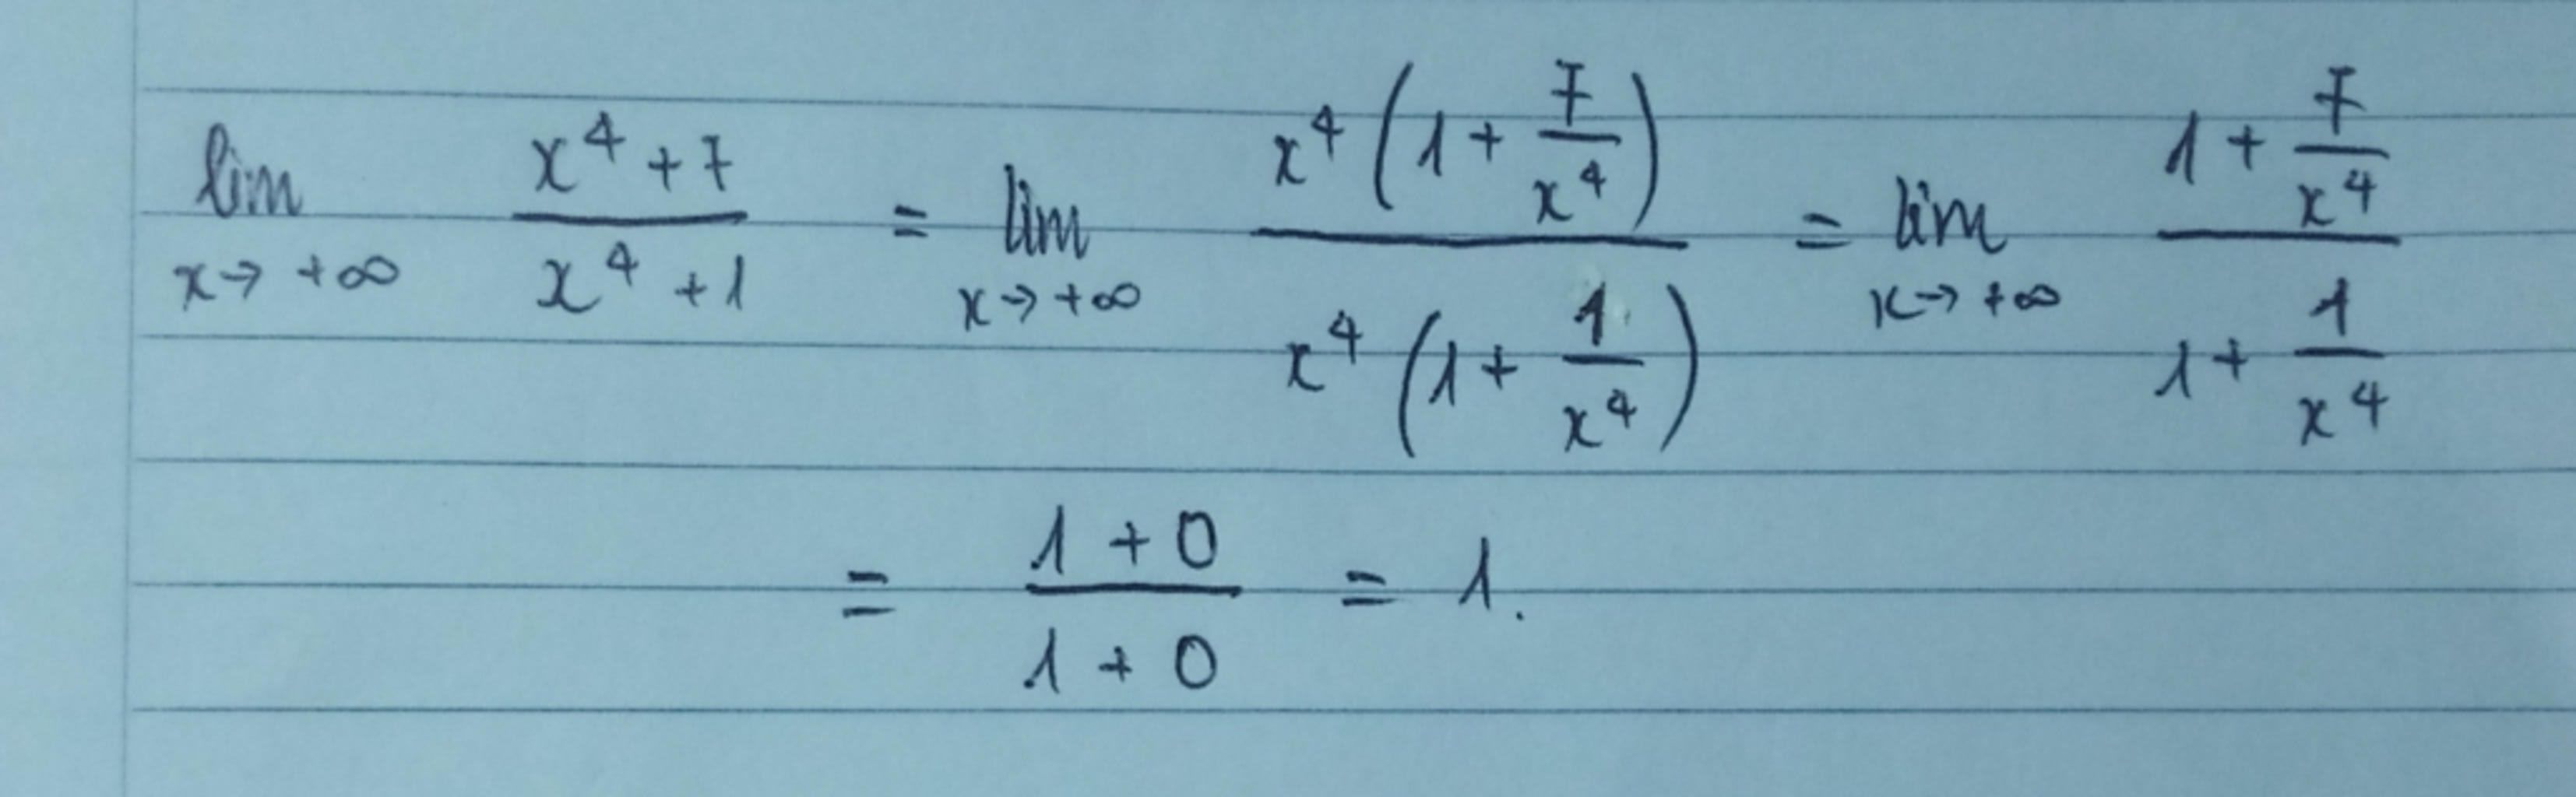 lim x→+∞ (x⁴+7)/(x⁴+1) = lim x→+∞ (x⁴(1+7/x⁴))/(x⁴(1+1/x⁴)) = lim x→+∞ (1+7/x⁴)/(1+1/x⁴)
= (1+0)/(1+0) = 1.